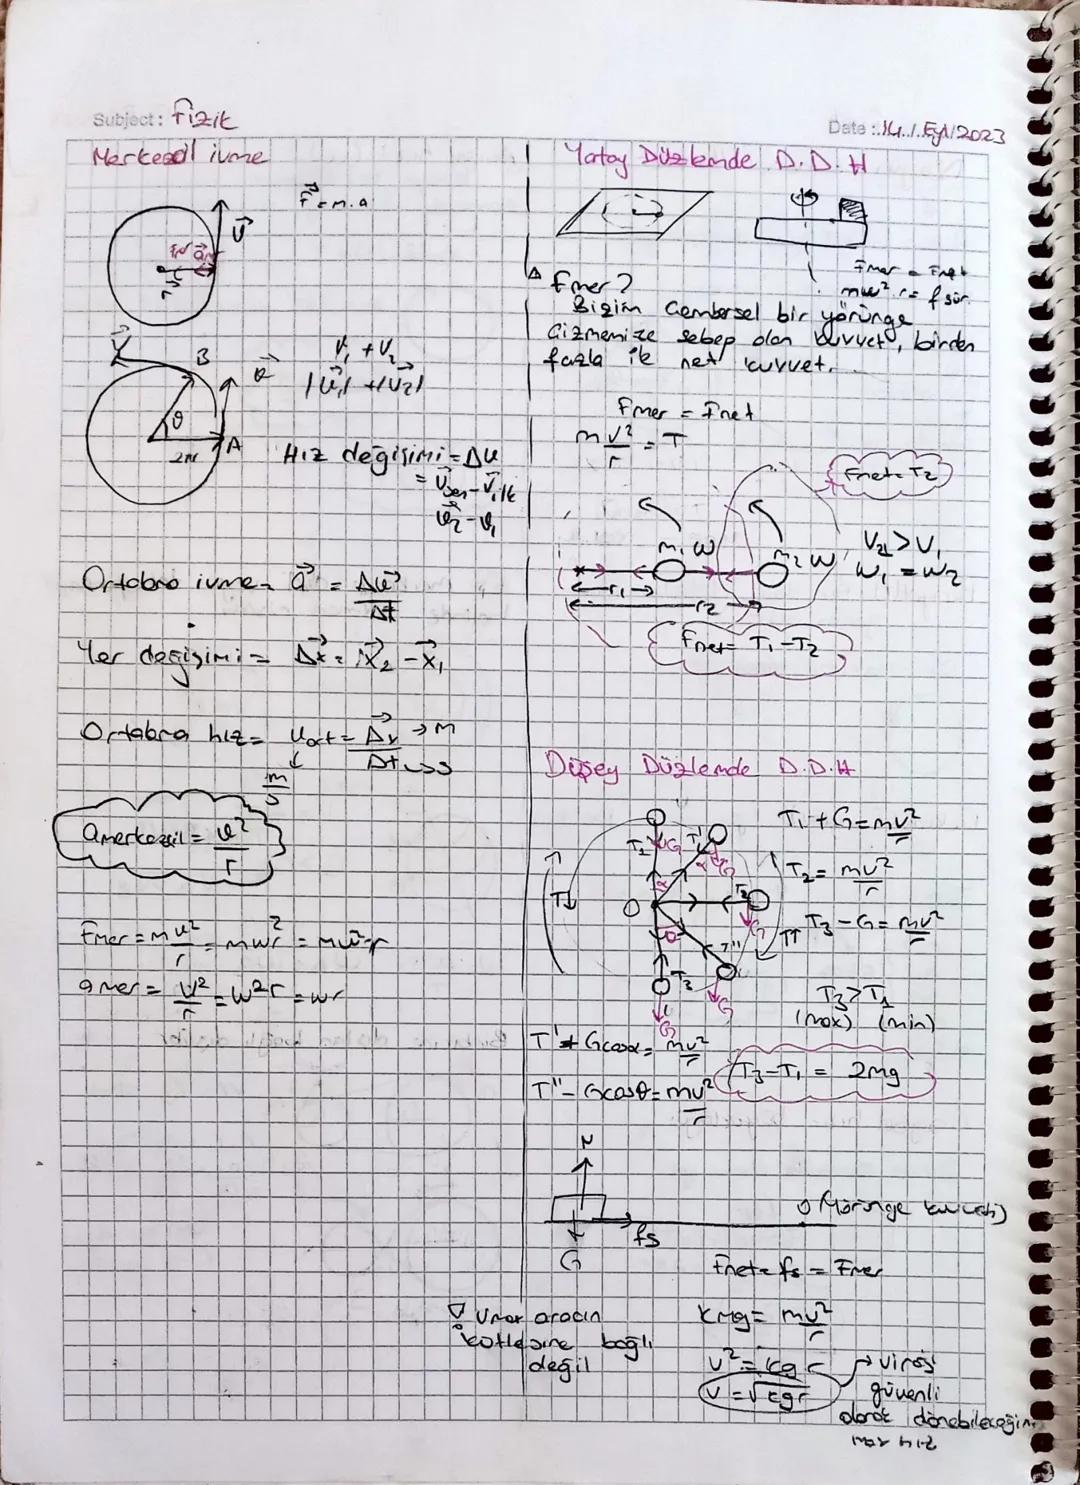 Subject: Fizik
Date: 14 / Eyl / 2023
Merkezcil ivme
F = m.a
V
r
V
B
V₁ + V₂
|V₁| + |V₂|
θ
A
2πr
Hız değişimi = Δv
= Vson - Vilk
v₂ - v₁
Ortalama ivme = a = Δv / Δt
Yer değişimi = Δx = x₂ - x₁
Ortalama hız = Vort = Δx → m
Δt → s
m/s
amerkezcil = v² / r
Fmer = m v²/r = mwr² = mw²r
amer = V²/r = w²r = wr
Yatay Düzlemde D.D.H
Fmer = Fnet
mw².r = fsür.
Fmer?
Bizim Çembersel bir yörünge
Çizmemize sebep olan kuvvet, birden
fazla ile net kuvvet.
Fmer = Fnet
m v²/r = T
Fnet = T₂
m₁ w
m₂ w
V₂ > V₁
w₁ = w₂
r₁
r₂
Fnet = T₁ - T₂
Düşey Düzlemde D.D.H
T₁ + G = mv²/r
T₂ = mv²/r
T₃ - G = mv²/r
T↓
O
T₁ G
T' G
α α
T₂ G
θ
T'' G
T₃
G
T↑
T₃ > T₁
(max) (min)
T' + Gcosα = mv²/r
T'' - Gcosθ = mv²/r
T₃ - T₁ = 2mg
N
fs
G
Fnet = fs = Fmer
kmg = mv²/r
v² = kgr
v = √kgr → viraj
güvenli
olarak dönebileceğin
max hız
Vmax aracın
kütlesine bağlı
değil